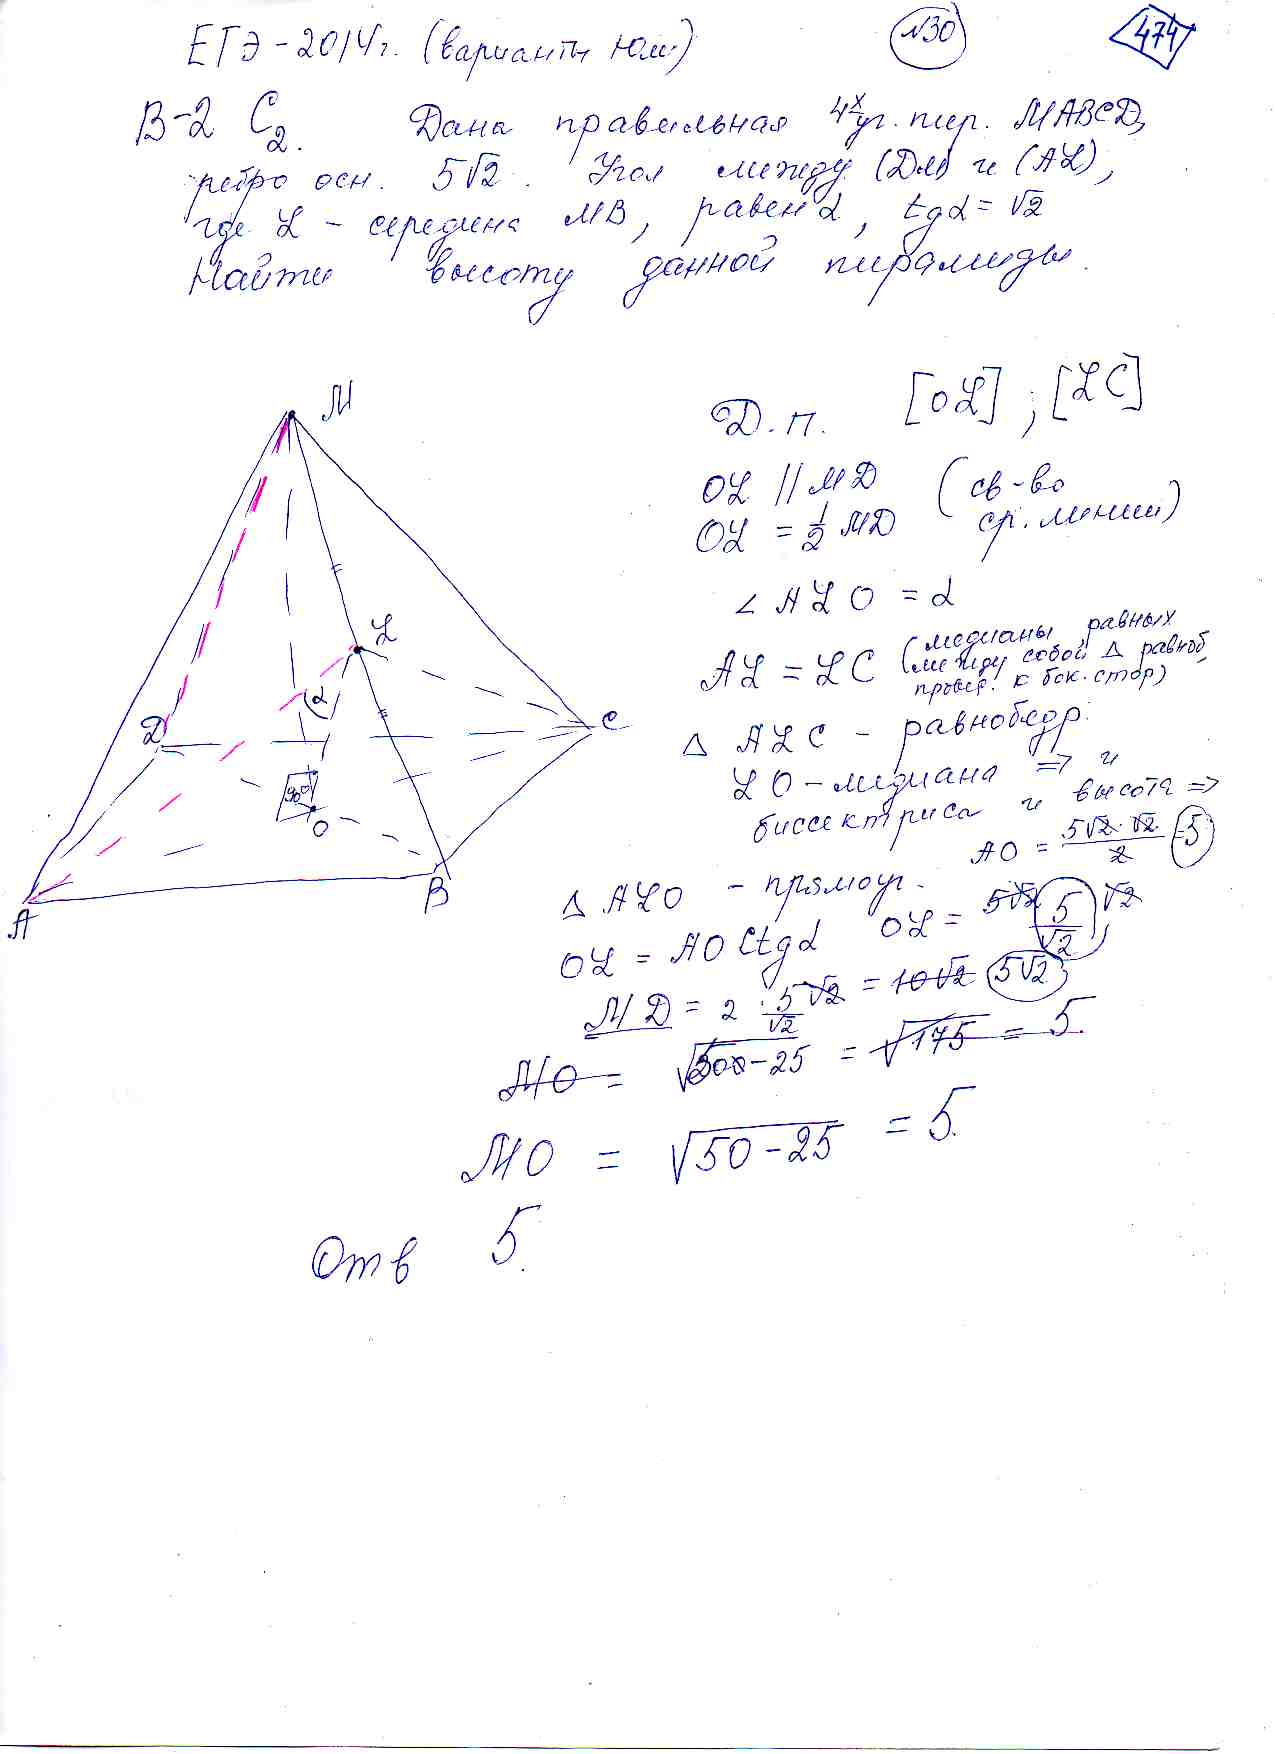 ЕГЭ-2014г. (варианты Юга) №30 474
В-2 C2. Дана правильная 4х уг. пир. MABCD,
ребро осн. 5√2. Угол между (DM) и (AL),
где L - середина MB, равен α, tg α = √2
Найти высоту данной пирамиды.
M
L
α
D
C
90°
O
B
A
Д.п. [OL]; [LC]
OL || MD (св-во
OL = 1/2 MD ср. линии)
∠ALO = α
AL = LC (медианы равных
между собой Δ равноб,
провед. к бок. стор)
Δ ALC - равнобедр.
LO - медиана => и
биссектриса и высота =>
AO = 5√2·√2/2 = 5
Δ ALO - прямоуг.
OL = AO ctg α OL = 5/√2
MD = 2 · 5/√2 = 10√2 5√2
MO = √200-25 = √175 = 5.
MO = √50-25 = 5.
Отв 5.